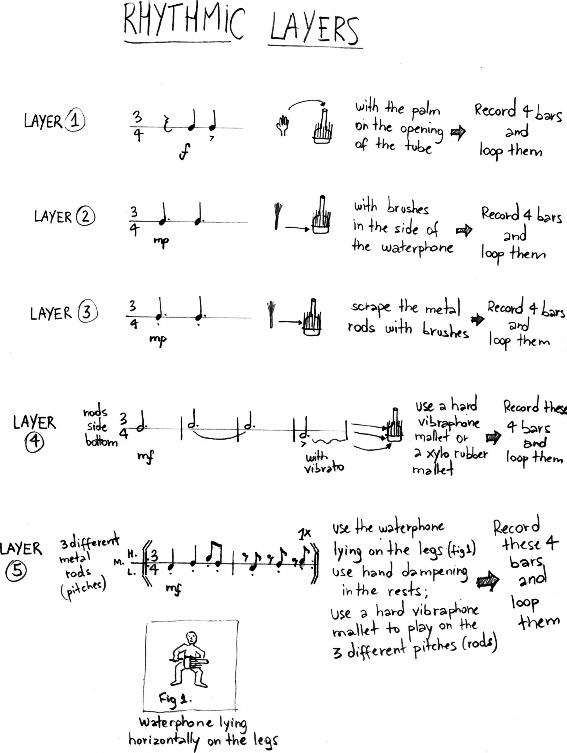 RHYTHMIC LAYERS
LAYER 1
3
4
f
with the palm
on the opening
of the tube
Record 4 bars
and
loop them
LAYER 2
3
4
mp
with brushes
in the side of
the waterphone
Record 4 bars
and
loop them
LAYER 3
3
4
mp
scrape the metal
rods with brushes
Record 4 bars
and
loop them
LAYER
4
rods
side
bottom
3
4
mf
with
vibrato
use a hard
vibraphone
mallet or
a xylo rubber
mallet
Record these
4 bars
and
loop them
LAYER
5
3 different
metal
rods
(pitches)
H.
M.
L.
3
4
mf
1x
use the waterphone
lying on the legs (fig1)
use hand dampening
in the rests;
use a hard vibraphone
mallet to play on the
3 different pitches (rods)
Record
these 4
bars
and
loop
them
Fig 1.
Waterphone lying
horizontally on the legs